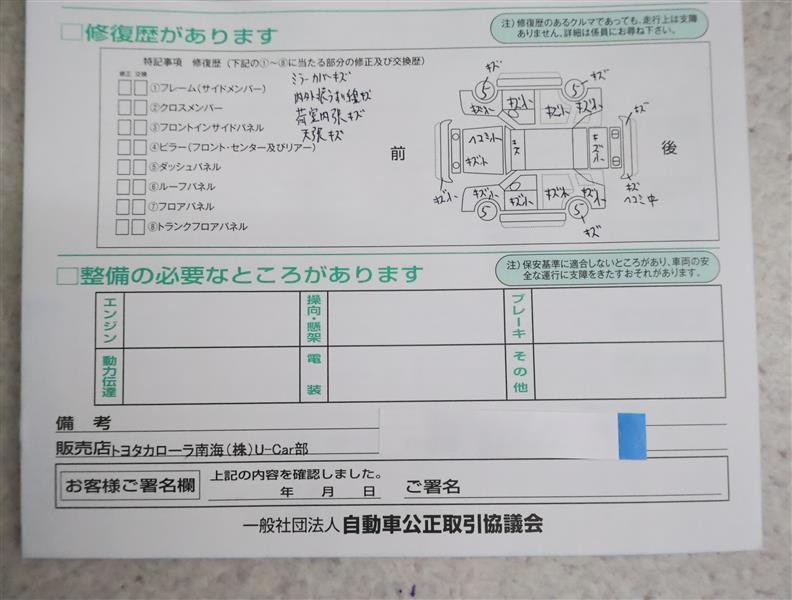 □修復歴があります
注）修復歴のあるクルマであっても、走行上は支障
ありません。詳細は係員にお尋ね下さい。
特記事項 修復歴（下記の①〜⑧に当たる部分の修正及び交換歴）
修正 交換
①フレーム（サイドメンバー）
②クロスメンバー
③フロントインサイドパネル
④ピラー（フロント・センター及びリアー）
⑤ダッシュパネル
⑥ルーフパネル
⑦フロアパネル
⑧トランクフロアパネル
ミラーカバーキズ
荷室内張キズ
天張キズ
前
後
キズ
キズ
5
5
キズ小
キズ小
キズ小
キズ
ヘコミ小
キズ小
キズ
キズ小
キズ小
キズ小
キズ小
キズ小
キズ小
キズ
ヘコミ中
5
5
キズ
□整備の必要なところがあります
注）保安基準に適合しないところがあり、車両の安
全な運行に支障をきたすおそれがあります。
エンジン
操向・懸架
ブレーキ
動力伝達
電装
その他
備考
販売店トヨタカローラ南海（株）U-Car部
お客様ご署名欄
上記の内容を確認しました。
年 月 日 ご署名
一般社団法人 自動車公正取引協議会